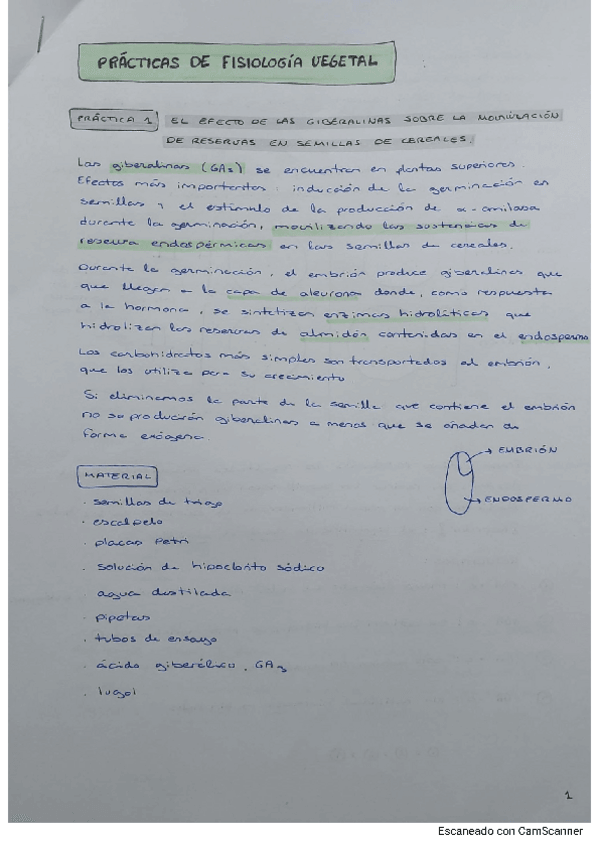 PRÁCTICAS DE FISIOLOGÍA VEGETAL
PRÁCTICA 1 EL EFECTO DE LAS GIBERALINAS SOBRE LA MOVILIZACIÓN
DE RESERVAS EN SEMILLAS DE CEREALES.
Las giberalinas (GAs) se encuentran en plantas superiores.
Efectos más importantes: inducción de la germinación en
semillas y el estímulo de la producción de α-amilasa
durante la germinación, movilizando las sustancias de
reserva endospérmicas en las semillas de cereales.
Durante la germinación, el embrión produce giberalinas que
que llegan a la capa de aleurona donde, como respuesta
a la hormona, se sintetizan enzimas hidrolíticas que
hidrolizan las reservas de almidón contenidas en el endospermo
Los carbohidratos más simples son transportados al embrión,
que los utiliza para su crecimiento
Si eliminamos la parte de la semilla que contiene el embrión
no se producirán giberalinas a menos que se añadan de
forma exógena.
EMBRIÓN
ENDOSPERMO
MATERIAL
· semillas de trigo
· escalpelo
· placas Petri
· solución de hipoclorito sódico
agua destilada
· pipetas
· tubos de ensayo
· ácido giberélico, GA3
· lugol
1
Escaneado con CamScanner